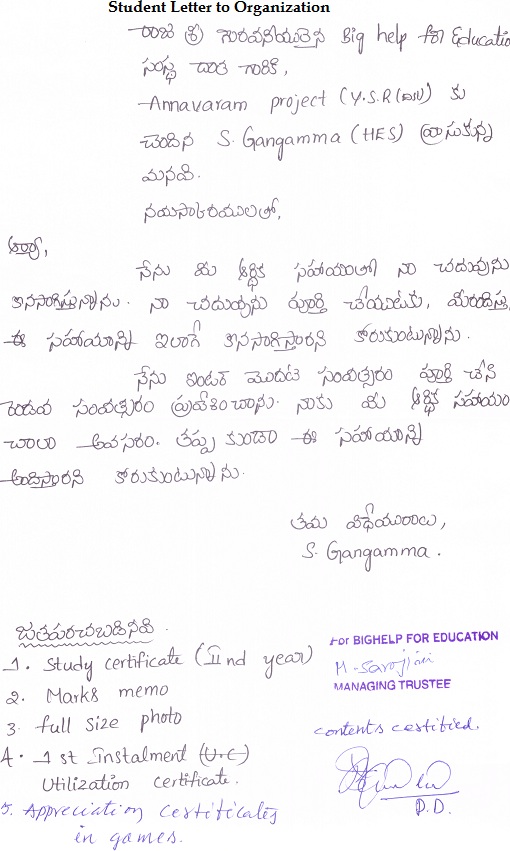 Student Letter to Organization
రాజ శ్రీ గౌరవనీయులైన Big help for Educatio
సంస్థ దాత గారికి,
Annavaram project (Y.S.R (Dist) కు
చెందిన S. Gangamma (HES) వ్రాసుకున్న
మనవి.
నమస్కారములతో,
ఆర్యా,
నేను మీ ఆర్థిక సహాయంతో నా చదువును
కొనసాగిస్తున్నాను. నా చదువును పూర్తి చేయుటకు, మీరందిస్తు
ఈ సహాయాన్ని ఇలాగే కొనసాగిస్తారని కోరుకుంటున్నాను.
నేను ఇంటర్ మొదట సంవత్సరం పూర్తి చేసి
రెండవ సంవత్సరం ప్రవేశించాను. నాకు మీ ఆర్థిక సహాయం
చాలా అవసరం. తప్ప కుండా ఈ సహాయాన్ని
అందిస్తారని కోరుకుంటున్నాను.
తమ విధేయురాలు,
S. Gangamma.
జతపరచబడినవి.
1. Study certificate (IInd year)
2. Marks memo
3. full size photo
4. 1st Instalment (U.C)
Utilization certificate.
5. Appreciation certificates
in games.
For BIGHELP FOR EDUCATION
M. Sarojini
MANAGING TRUSTEE
contents certified.
P.D.